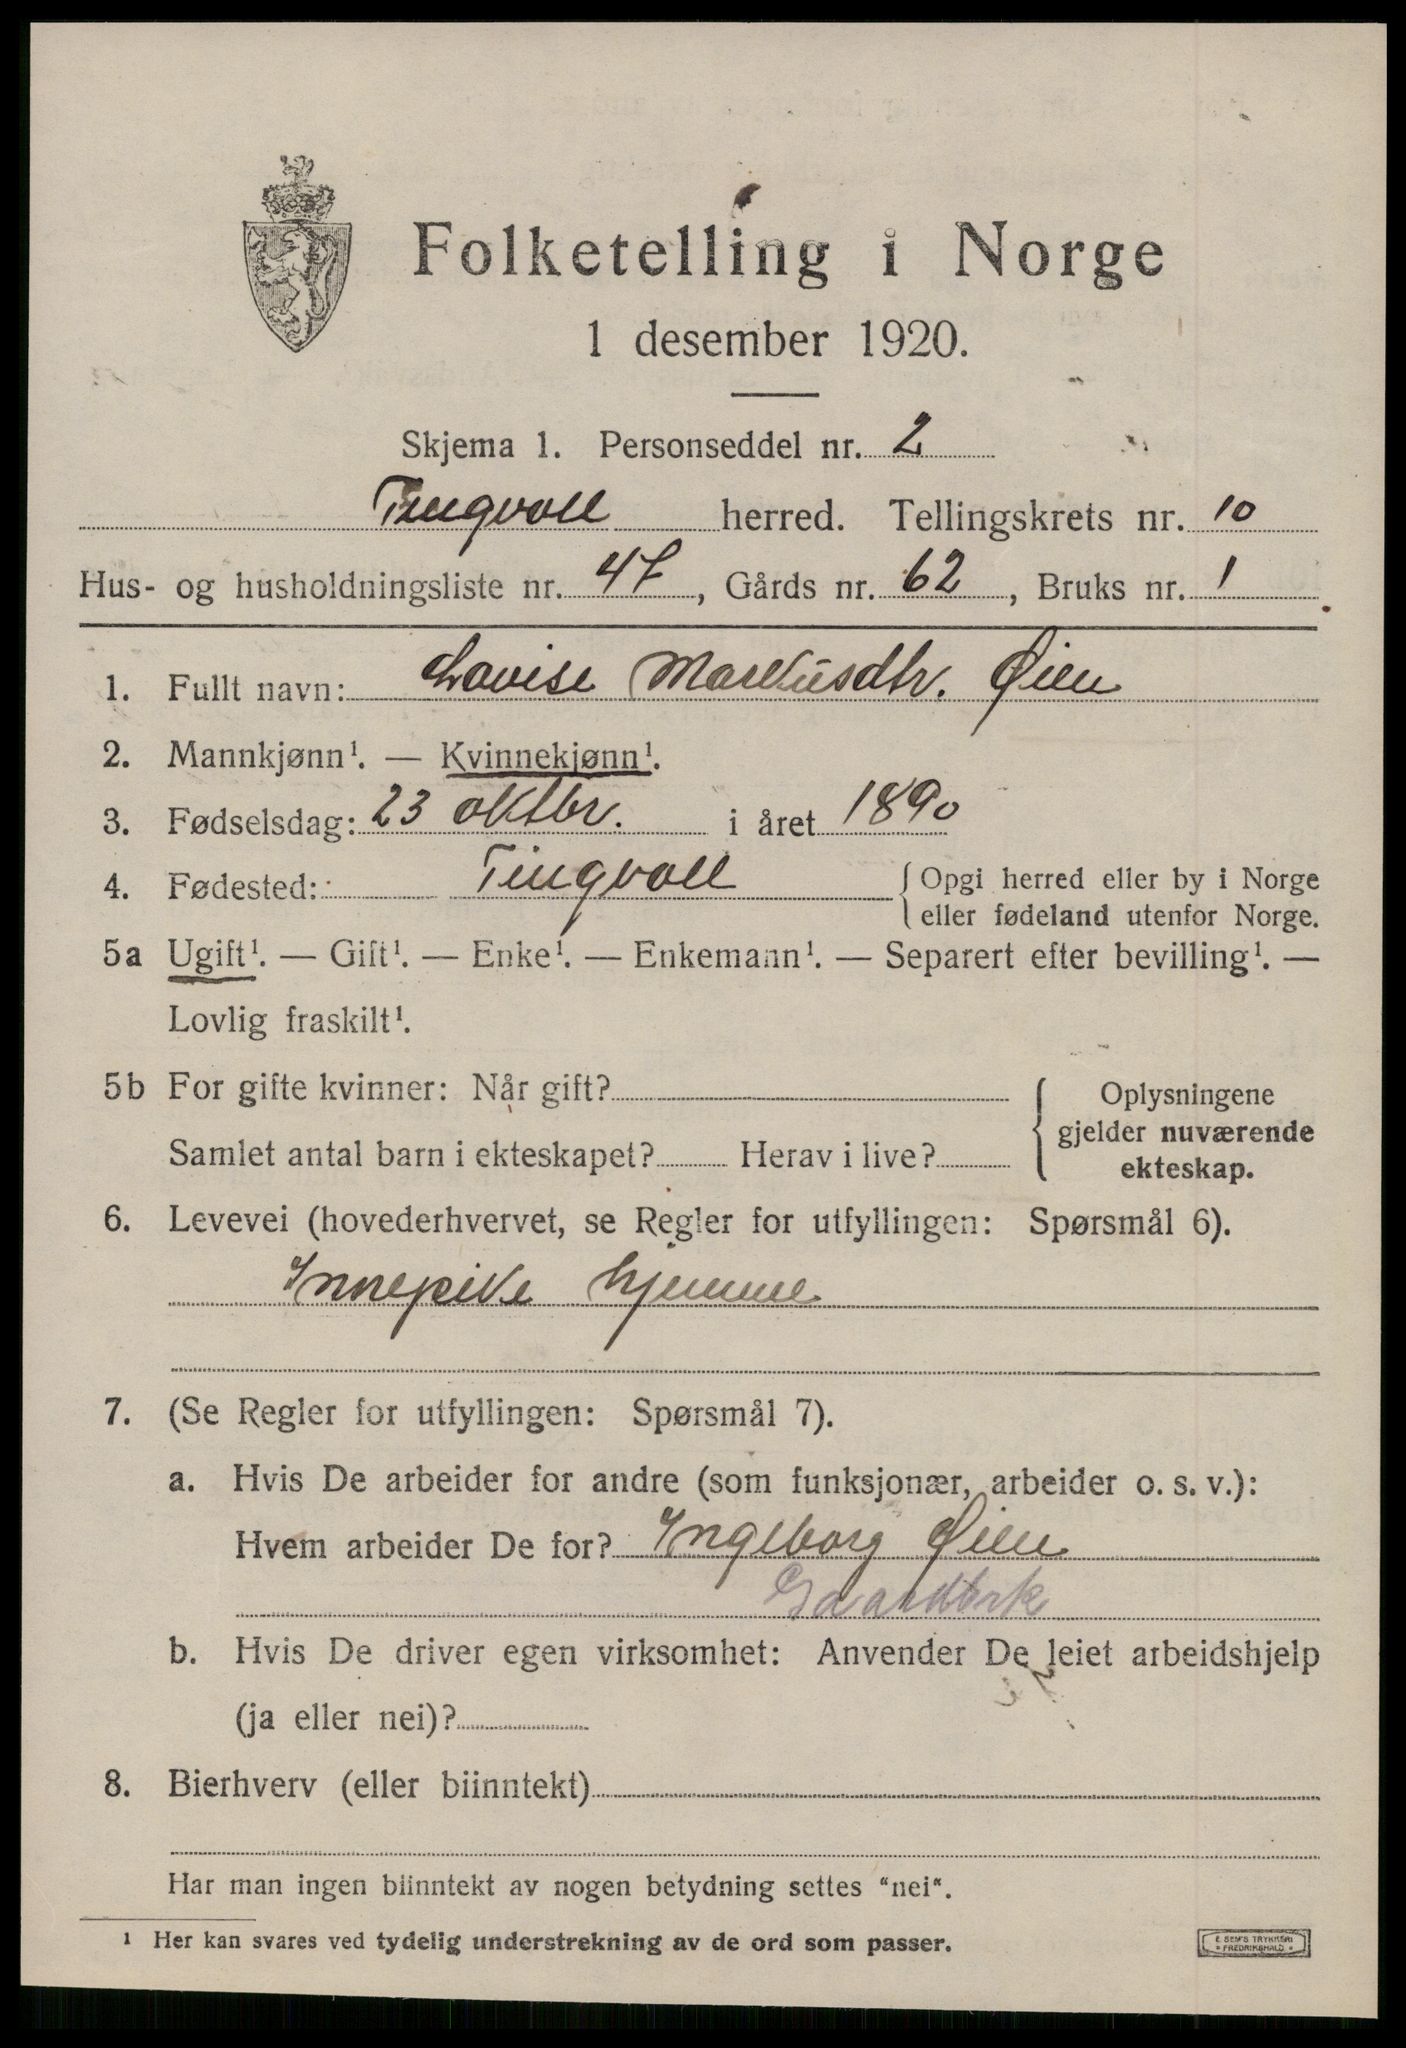 Folketelling i Norge
1 desember 1920.
Skjema 1. Personseddel nr. 2
Tingvoll herred. Tellingskrets nr. 10
Hus- og husholdningsliste nr. 47, Gårds nr. 62, Bruks nr. 1
1. Fullt navn: Lovise Markusdtr. Øien
2. Mannkjønn¹. — Kvinnekjønn¹.
3. Fødselsdag: 23 oktbr. i året 1890
4. Fødested: Tingvoll { Opgi herred eller by i Norge
eller fødeland utenfor Norge.
5a Ugift¹. — Gift¹. — Enke¹. — Enkemann¹. — Separert efter bevilling¹. —
Lovlig fraskilt¹.
5b For gifte kvinner: Når gift?
Samlet antal barn i ekteskapet? Herav i live?
Oplysningene
gjelder nuværende
ekteskap.
6. Levevei (hovederhvervet, se Regler for utfyllingen: Spørsmål 6).
Innepike hjemme
7. (Se Regler for utfyllingen: Spørsmål 7).
a. Hvis De arbeider for andre (som funksjonær, arbeider o. s. v.):
Hvem arbeider De for? Ingeborg Øien
Gaardbrk
b. Hvis De driver egen virksomhet: Anvender De leiet arbeidshjelp
(ja eller nei)?
8. Bierhverv (eller biinntekt)
Har man ingen biinntekt av nogen betydning settes "nei".
¹ Her kan svares ved tydelig understrekning av de ord som passer.
E. SEM'S TRYKKERI
FREDRIKSHALD